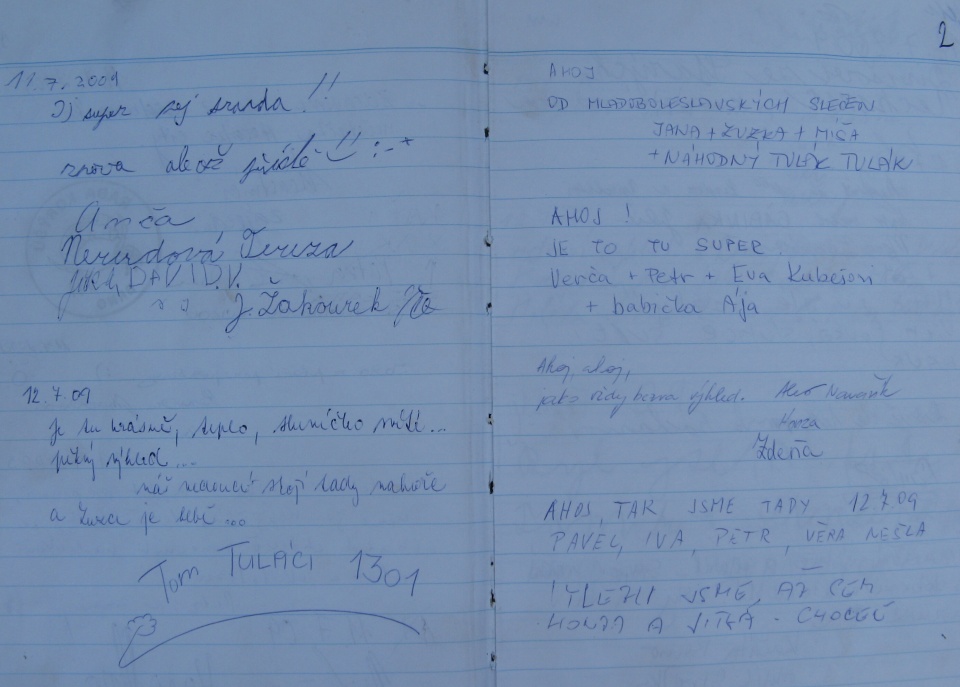 11.7.2009
super
znova
Anča
Nerudová Tereza
DAVID.V.
J. Žakourek
12.7.09
je tu krásně, teplo, sluníčko svítí...
pěkný výhled...
náš stojí tady nahoře
a je
Tom TULÁCI 1301
2
AHOJ
OD MLADOBOLESLAVSKÝCH SLEČEN
JANA + ZUZKA + MÍŠA
+ NÁHODNÝ TULÁK TULÁK
AHOJ !
JE TO TU SUPER
Verča + Petr + Eva Kubešovi
+ babička Ája
Ahoj, ahoj,
jako vždy bezva výhled. Aleš
Honza
Zdeňa
AHOJ, TAK JSME TADY 12.7.09
PAVEL, IVA, PETR, VĚRA NEŠLA
VYLEZLI JSME AŽ SEM
HONZA A VÍŤA - CHOCEŇ